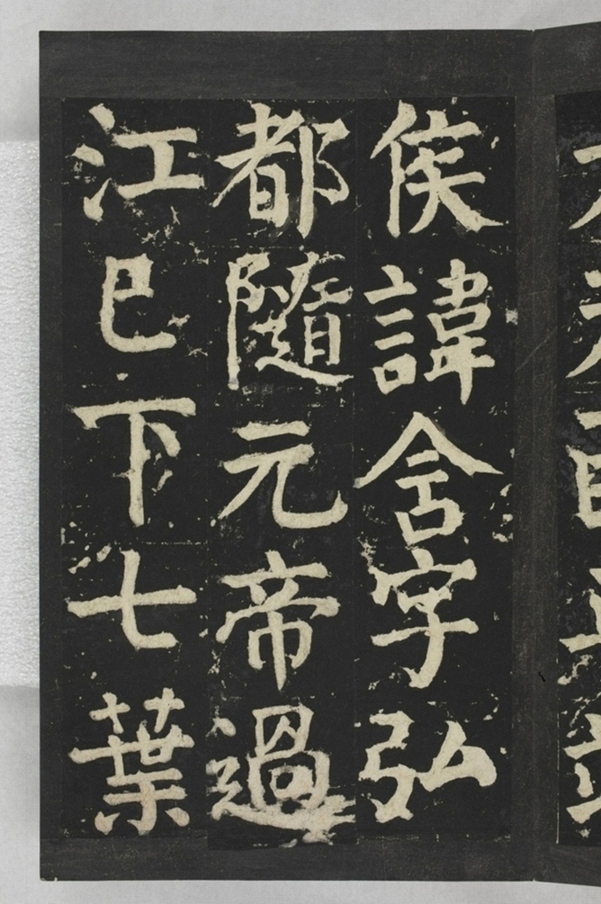 侯諱含字弘
都隨元帝過
江巳下七葉